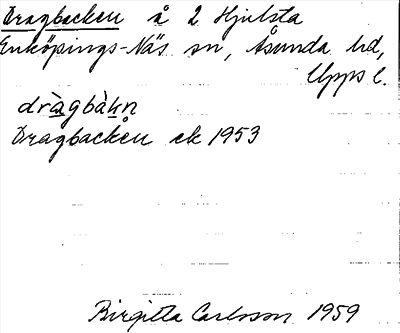 Dragbacken å 2 Hjulsta
Enköpings-Näs sn, Åsunda hd,
Upps l.
dràgbàkn
Dragbacken ek 1953
Birgitta Carlsson 1959